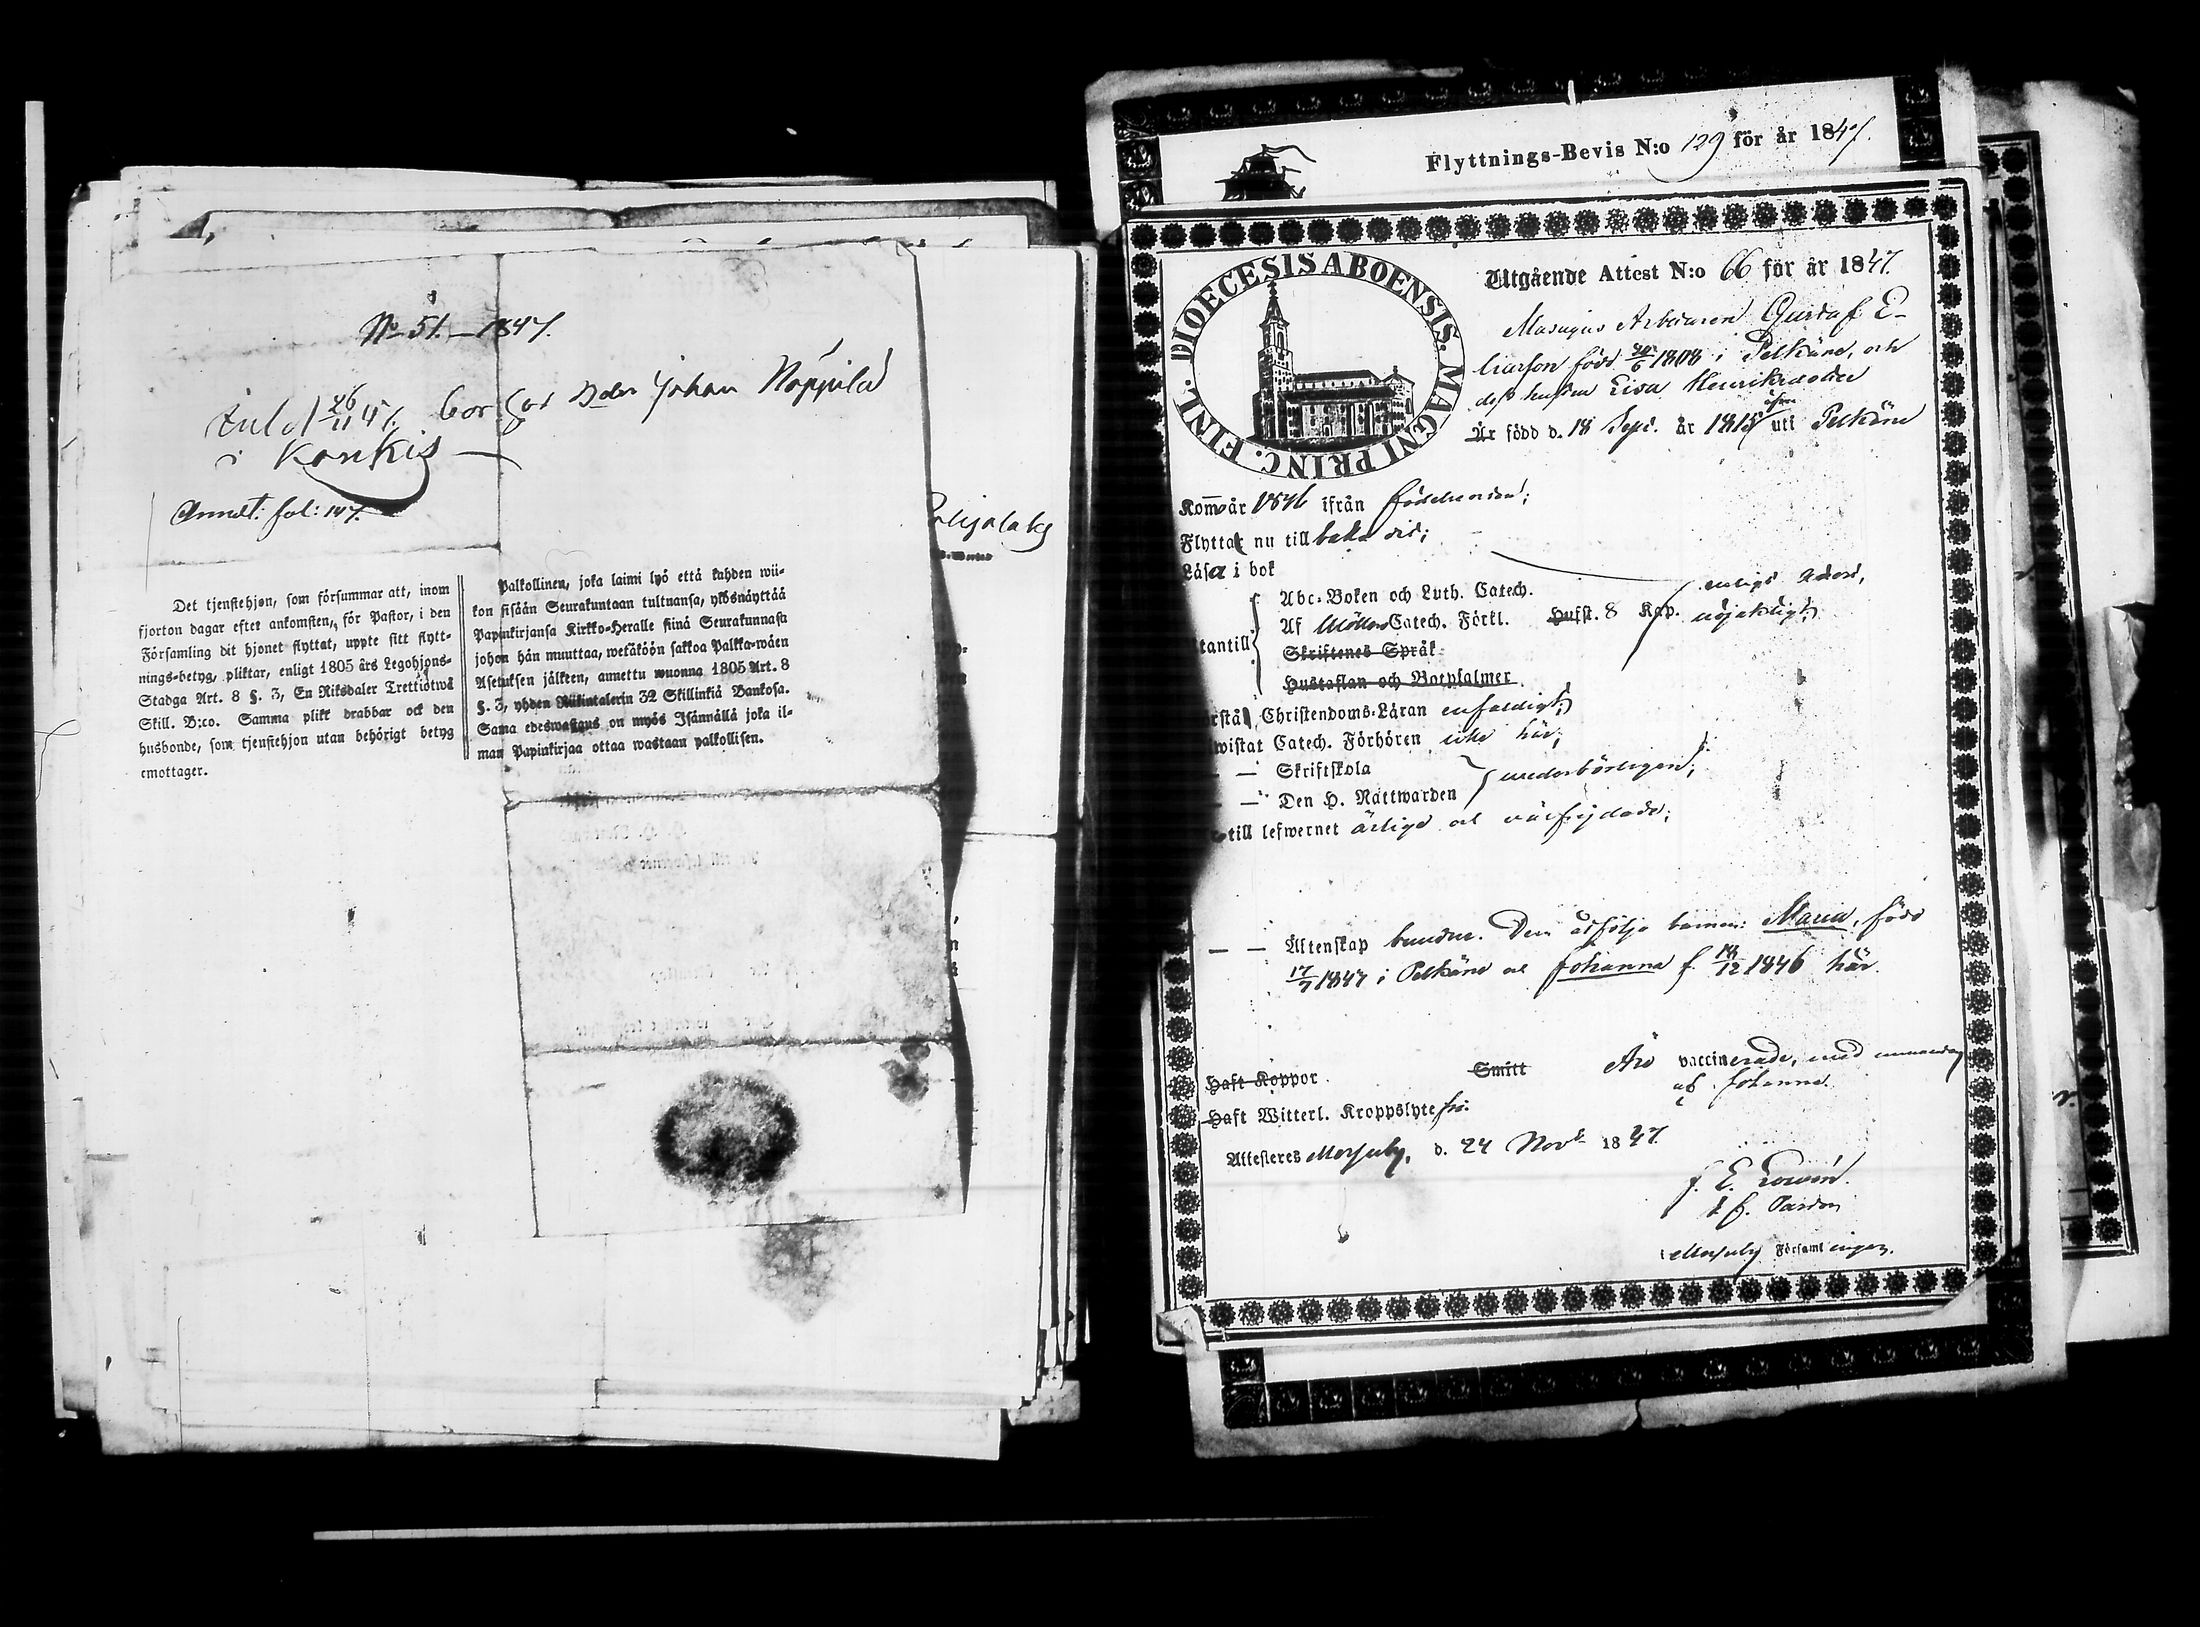 No 51. — 1847.
Inl. d. 26/11 47. bor hos Johan Noppila
i Konkis —
Annot: fol: 147.
Det tjenstehjon, som försummar att, inom
fjorton dagar efter ankomsten, för Pastor, i den
Församling dit hjonet flyttat, uppte sitt flytt-
nings-betyg, pliktar, enligt 1805 års Legohjons-
Stadga Art. 8 §. 3, En Riksdaler Trettiotwå
Skill. B:co. Samma plikt drabbar ock den
husbonde, som tjenstehjon utan behörigt betyg
emottager.
Palkollinen, joka laimi lyö että kahden wii-
kon sisään Seurakuntaan tultuansa, yldsnäyttää
Papinkirjansa Kirkko-Heralle siinä Seurakunnasa
johon hän muuttaa, wetäköön sakkoa Palkka-wäen
Asetuksen jälkeen, annettu wuonna 1805 Art. 8
§. 3, yhden Riikintalerin 32 Skillinkiä Bankosa.
Sama edeswastaus on myös Isännällä joka il-
man Papinkirjaa ottaa wastaan palkollisen.
Flyttnings-Bevis N:o 129 för år 1847.
DIOECESIS ABOENSIS. MAGNI PRINC. FINL.
Utgående Attest N:o 66 för år 1847.
Masugns Arbetaren Gustaf E-
liasson född 20/6 1808 i Pelkäne, och
dess hustru Lisa Henriksdotter
Är född d. 18 Sept. år 1815 uti Pelkäne
Kom år 1846 ifrån födelseorten;
Flytta nu tillbaka dit;
Läsa i bok
Abc-Boken och Luth. Catech.
Af Möllers Catech. Förkl. Hufst. 8 Kap.
enligt
nöjaktigt;
tantill
Skriftenes Språk
Hustaflan och Botpsalmer
rstå Christendoms-Läran enfaldigt;
wistat Catech. Förhören icke här;
— — Skriftskola
— — Den H. Nattwarden
wederbörligen;
till lefwernet ärlige och välfrejdade;
— — Äktenskap bundne. Dem åtfölja barnen: Maria, född
17/7 1847 i Pelkäne och Johanna f. 12 1846 här.
Haft Koppor. Smitt Äro vaccinerade, med undantag
af Johanna.
Haft Witterl. Kroppslyte fri.
Attesteres d. 24 Nov. 1847
Församlingen.